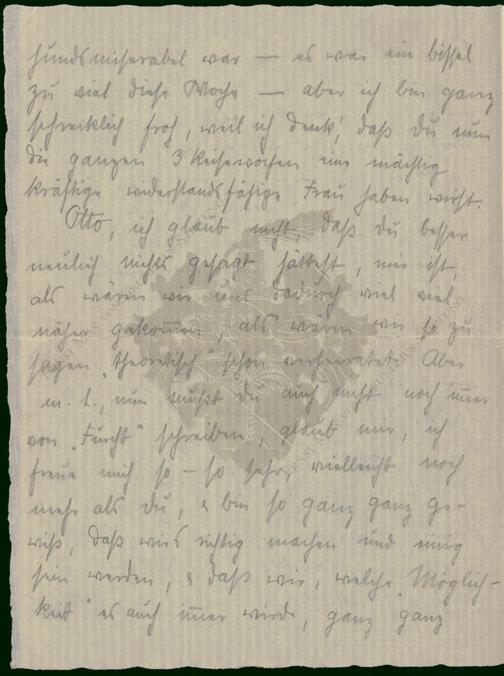 hundsmiserabel war — es war ein bissel
zu viel diese Woche — aber ich bin ganz
schrecklich froh, weil ich denk', daß Du nun
die ganzen 3 Reisewochen eine mächtig
kräftige widerstandsfähige Frau haben wirst.
Otto, ich glaub nicht, daß Du besser
neulich nichts gesagt hättest, mir ist,
als wären wir uns dadurch viel viel
näher gekommen, als wären wir so zu
sagen „theoretisch" schon verheiratet. Aber
m. l., nun mußt Du auch nicht noch im̄er
von „Furcht" schreiben, glaub mir, ich
freue mich so – so sehr, vielleicht noch
mehr als Du, & bin so ganz ganz ge-
wiß, daß wirs richtig machen und einig
sein werden, & daß wir, welche „Möglich-
keit" es auch im̄er werde, ganz ganz